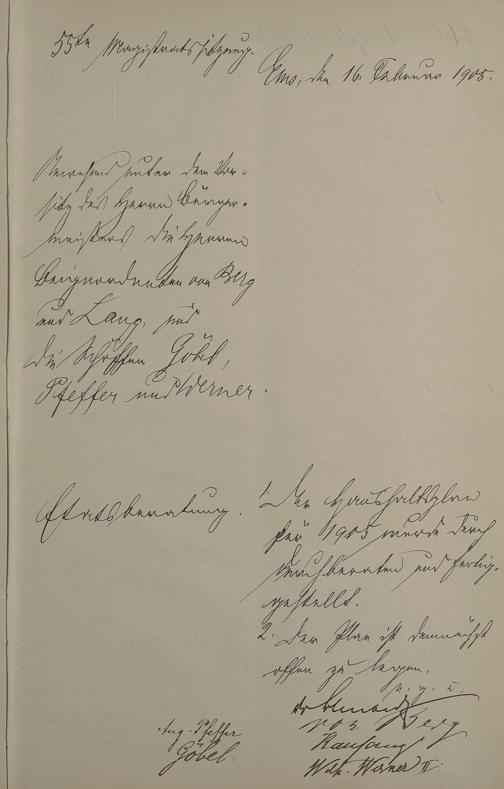 55te Magistratssitzung.
Ems, den 16. Februar 1905.
Anwesend unter dem Vor-
sitz des Herrn Bürger-
meisters die Herren
Beigeordneten von Berg
und Lang, und
die Schöffen Göbel,
Pfeffer und Werner.
Etatsberatung.
1. Der Haushaltsplan
für 1905 wurde durch
durchberaten und fertig-
gestellt.
2. Der Plan ist demnächst
offen zu legen.
v. g. u.
von Berg
Aug. Pfeffer
Göbel
Wilh. Werner II